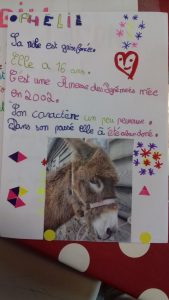 OPHELIE
Sa robe est gris foncé.
Elle a 16 ans.
C'est une Anesse des Pyrénées née
en 2002.
Son caractère un peu peureuse.
Dans son passé elle à été abandonné.